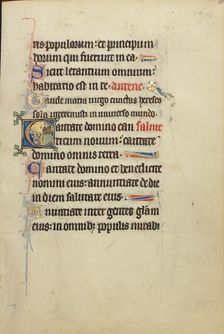 ris populorum: et principum
horum qui fuerunt in ea.
Sicut letantium omnium
habitatio est in te. antene
Gaude maria virgo cunctas hereses
sola interemisti in universo mundo.
Cantate domino can
ticum novum: cantate
domino omnis terra.
Cantate domino et benedicite
nomini eius: annuntiate de die
in diem salutare eius.
Annuntiate inter gentes gl̄iam
eius: in omnib; populis mirabi